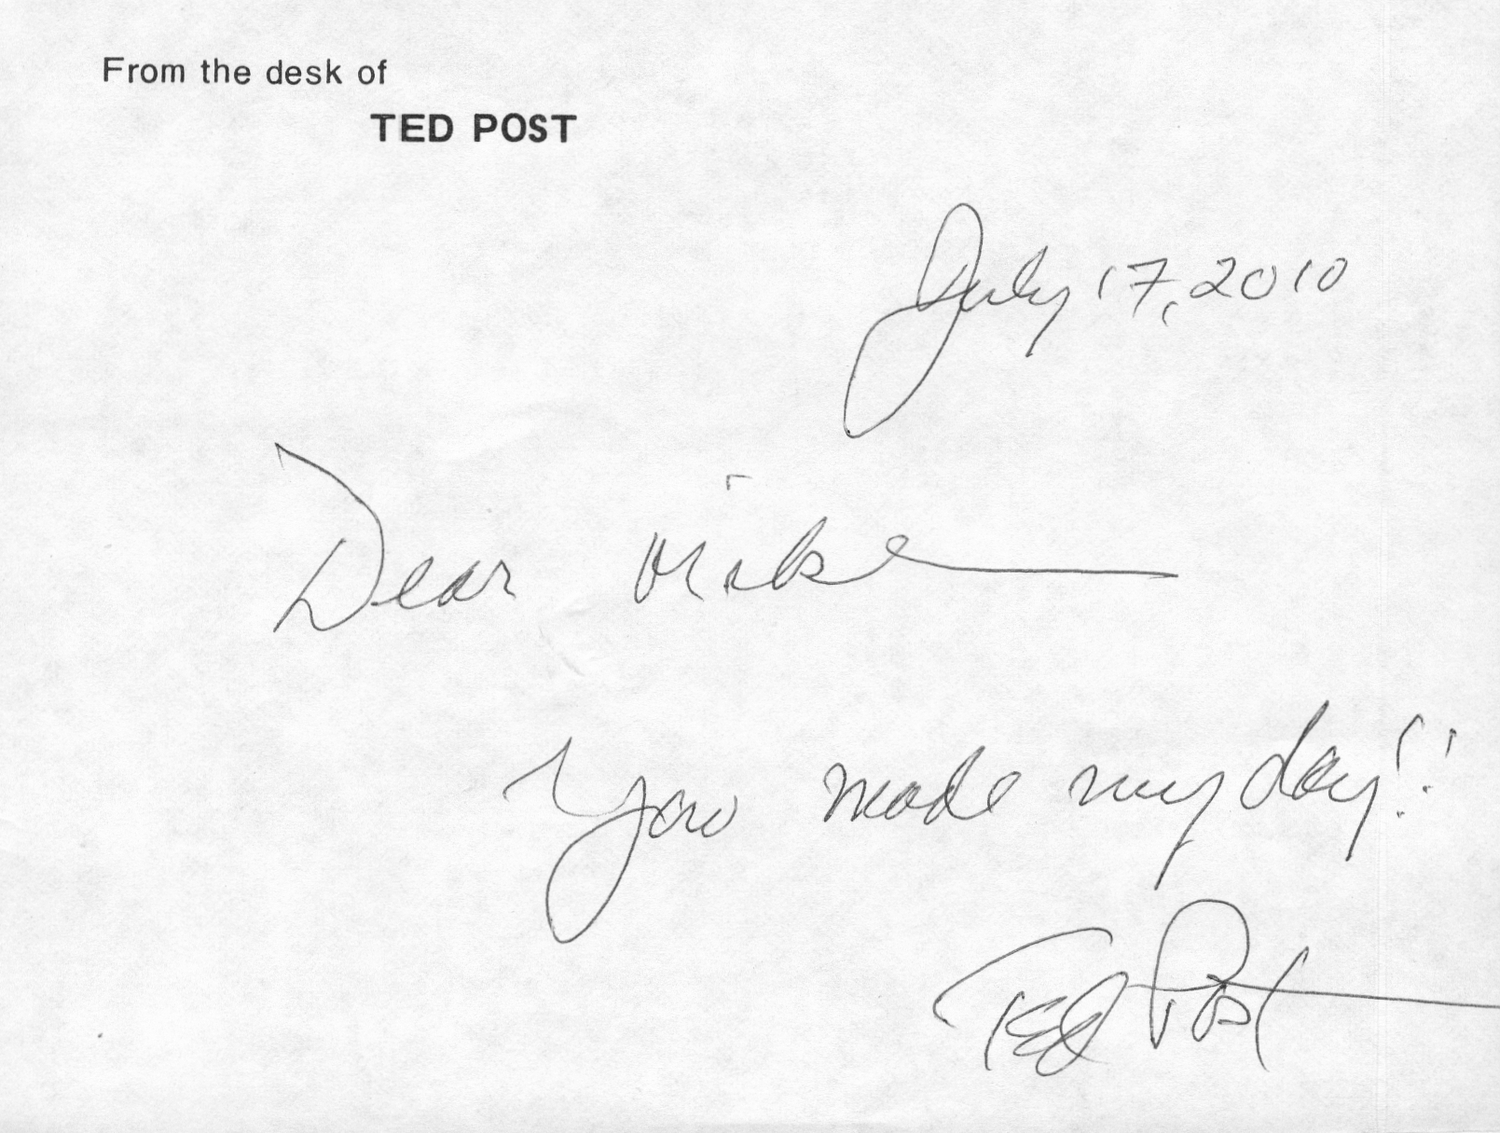 From the desk of
TED POST
July 17, 2010
Dear Mike
You made my day!!
Ted Post